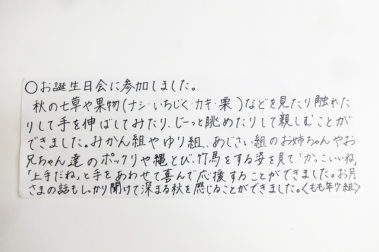 ○お誕生日会に参加しました。
秋の七草や果物(ナシ・いちじく・カキ・栗)などを見たり触れた
りして手を伸ばしてみたり、じーっと眺めたりして親しむことが
できました。みかん組やゆり組、あじさい組のお姉ちゃんやお
兄ちゃん達のポックリや縄とび、竹馬をする姿を見て「かっこいいね」
「上手だね」と手をあわせて喜んで応援することができました。お月
さまの話もしっかり聞けて深まる秋を感じることができました。<もも年り組>